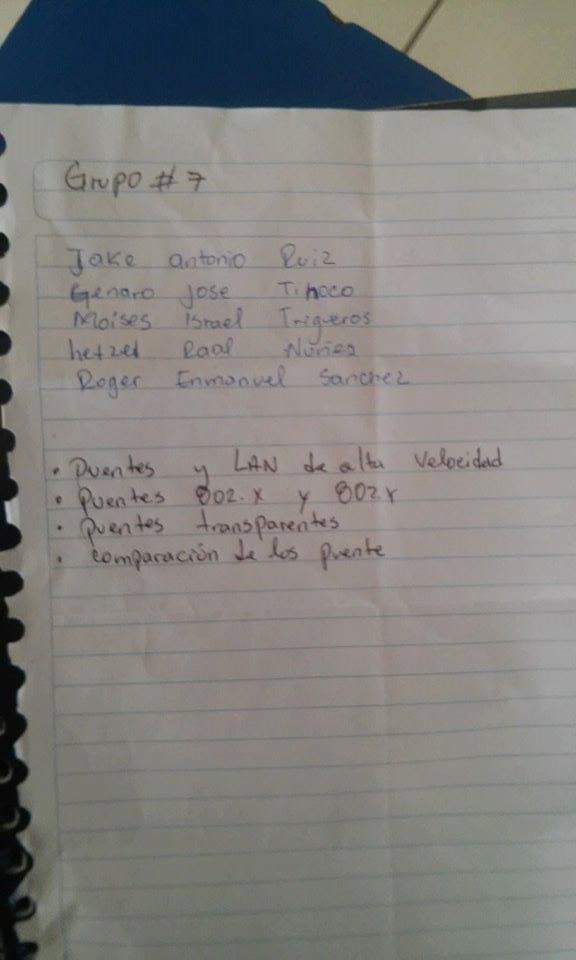 Grupo # 7
Jake antonio Ruiz
Genaro Jose Tinoco
Moises Israel Trigueros
hetzel Raal Nuñes
Roger Enmanuel Sanchez
• Puentes y LAN de alta velocidad
• Puentes 802.X y 802.Y
• puentes transparentes
• comparación de los puente